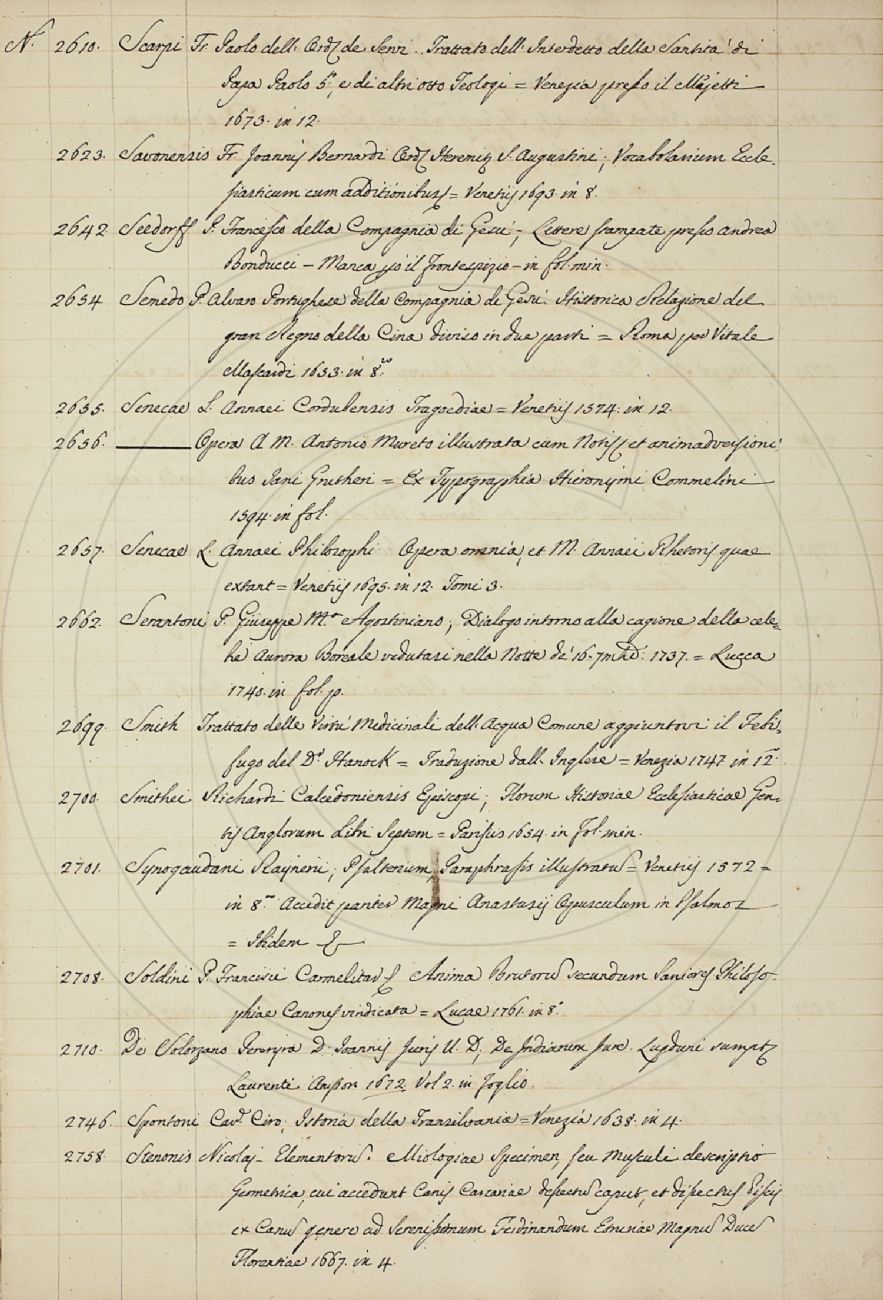 N.° 2610. Scarpi Fr. Paolo dell' Ord. de Servi. Trattato dell' Interdetto della Santità di
Papa Paolo 5.°, e di altri otto Teologi = Venezia presso il Majetti
1673. in 12.
2623. Savonensis Fr. Joannis Bernardi Ord. Heremit. S. Augustini; Vocabolarium Eccle-
siasticum cum additionibus = Venetiis 1693 in 8.
2642 Seedorff P. Francesco della Compagnia di Gesù -; Lettere stampate presso Andrea
Bonducci - Manca il frontespizio - in fol. min.
2654 Semedo P. Alvaro Portughese della Compagnia di Gesù. Historica Relazione del
gran Regno della Cina diviso in due parti = Roma per Vitale
Mascardi 1653. in 8.vo
2655. Senecae L. Annaei Cordubensis Tragoediae = Venetiis 1574. in 12.
2656. ——— Opera A M. Antonio Mureto illustrata cum Notis, et animadversioni-
bus Jani Grutheri = Ex Typographia Hieronymi Commelini
1594. in fol.
2657. Senecae L. Annaei Philosophi Opera omnia, et M. Annaei Rhetoris quae
extant = Venetiis 1695. in 12. Tomi 3.
2662. Serantoni P. Giuseppe M.a Agostiniano; Dialogo intorno alla cagione della cele-
bre Aurora Boreale vedutasi nella Notte de' 16. Xmbre 1737. = Lucca
1740. in fol. p.
2699. Smith Trattato delle Virtù Medicinali dell' Acqua Comune aggiuntovi il Febri-
fugo del D.r Hanock = Traduzione dall' Inglese = Venezia 1747 in 12.
2700. Smithei Richardi Calcedoniensis Episcopi; Florum Historiae Ecclesiasticae Gen-
tis Anglorum Libri Septem = Parisiis 1654. in fol. min.
2701. Synogaudani Raynerii; Psalterium Paraphrasis illustratum = Venetiis 1572 =
in 8.vo Accedit pariter Magni Anastasij Opusculum in Psalmos
= Ibidem &
2708. Soldini P. Francisci Carmelitae; Anima Brutorum secundum Saniores Philoso-
phiae Canones vindicata = Lucae 1761. in 8.°
2710. De Solorzano Pereryra D. Joannis Juris U. D; De Indiarum Jure. Lugduni sumptz
Laurenti Anisson 1672. Vol 2. in foglio.
2746. Spontoni Cav.r Ciro; Istoria della Transilvania = Venezia 1638. in 4.
2758. Stenonis Nicolaj - Elementorum. Miologiae Specimen, seu Musculi descriptio
Geometrica, cui accedunt Canis Carcariae dissectum caput, et dissectus Piscis
ex Canum genere ad Serenissimum Ferdinandum Etruriae Magnum Ducem
Florentiae 1667. in 4.